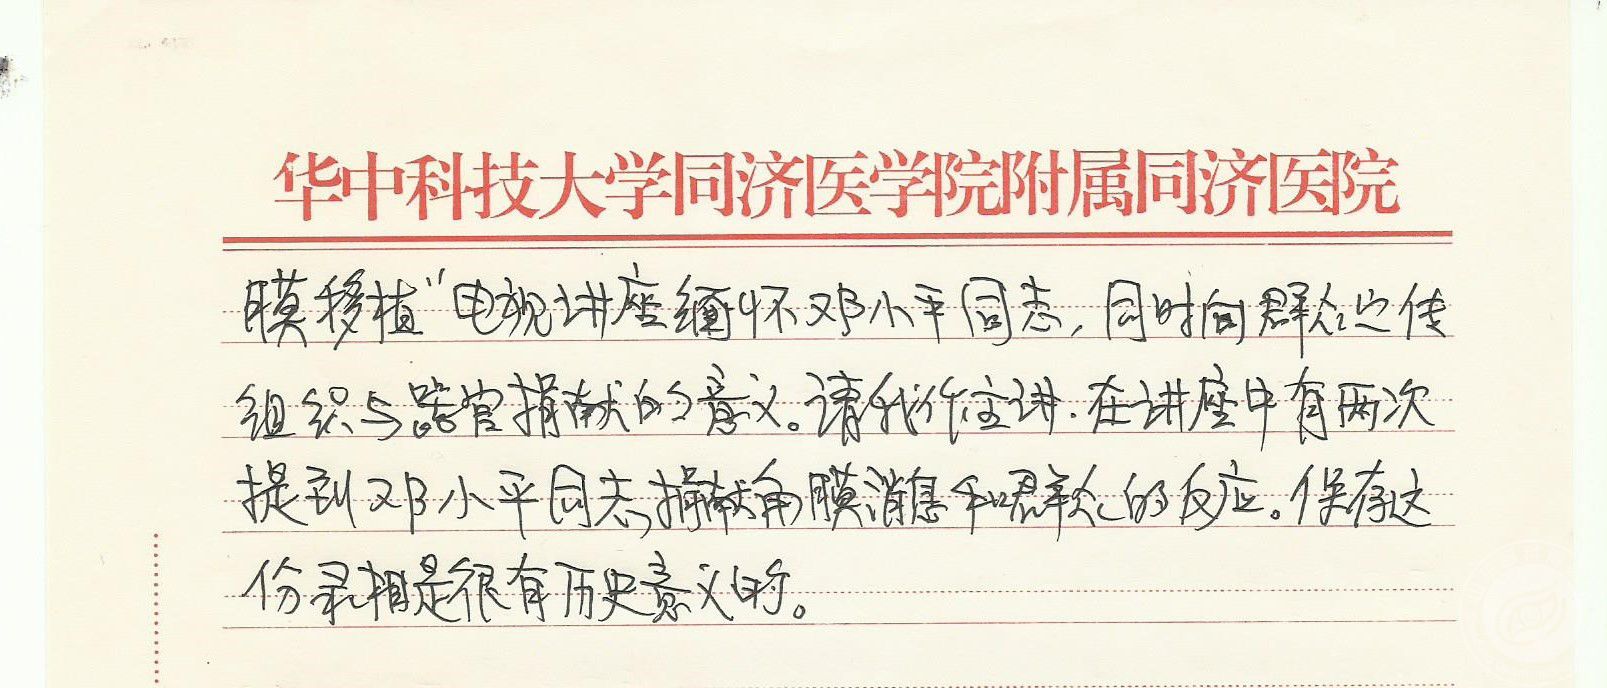 华中科技大学同济医学院附属同济医院
膜移植"电视讲座缅怀邓小平同志，同时向群众宣传
组织与器官捐献的意义。请我作主讲.在讲座中有两次
提到邓小平同志捐献角膜消息和群众的反应。保存这
份录相是很有历史意义的。